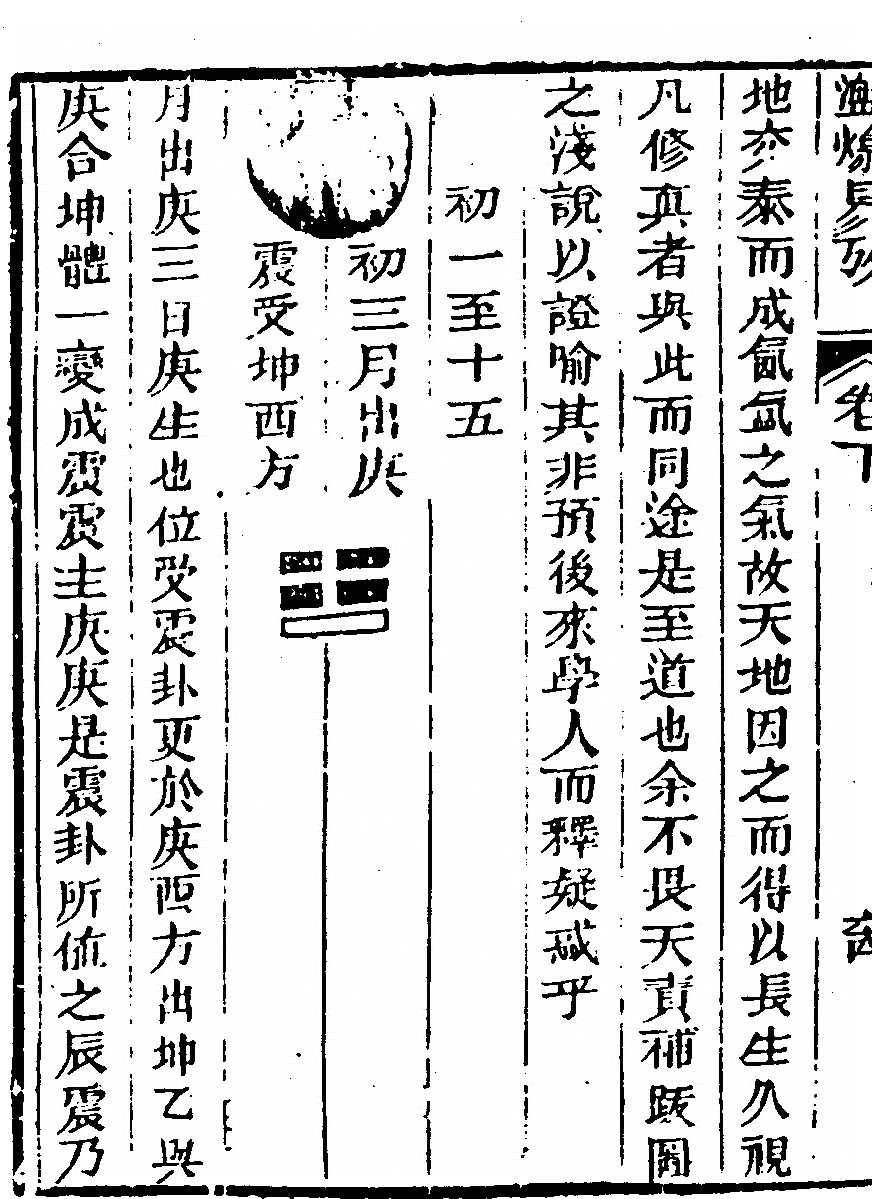 卷下
地交泰而成氤氳之氣故天地因之而得以長生久視
凡修真者與此而同途是至道也余不畏天責補跋圖
之淺說以證喻其非預後來學人而釋疑惑乎
初一至十五
初三月出庚
震受坤西方
月出庚三日庚生也位受震卦更於庚西方出坤乙與
庚合坤體一變成震震主庚庚是震卦所依之辰震乃